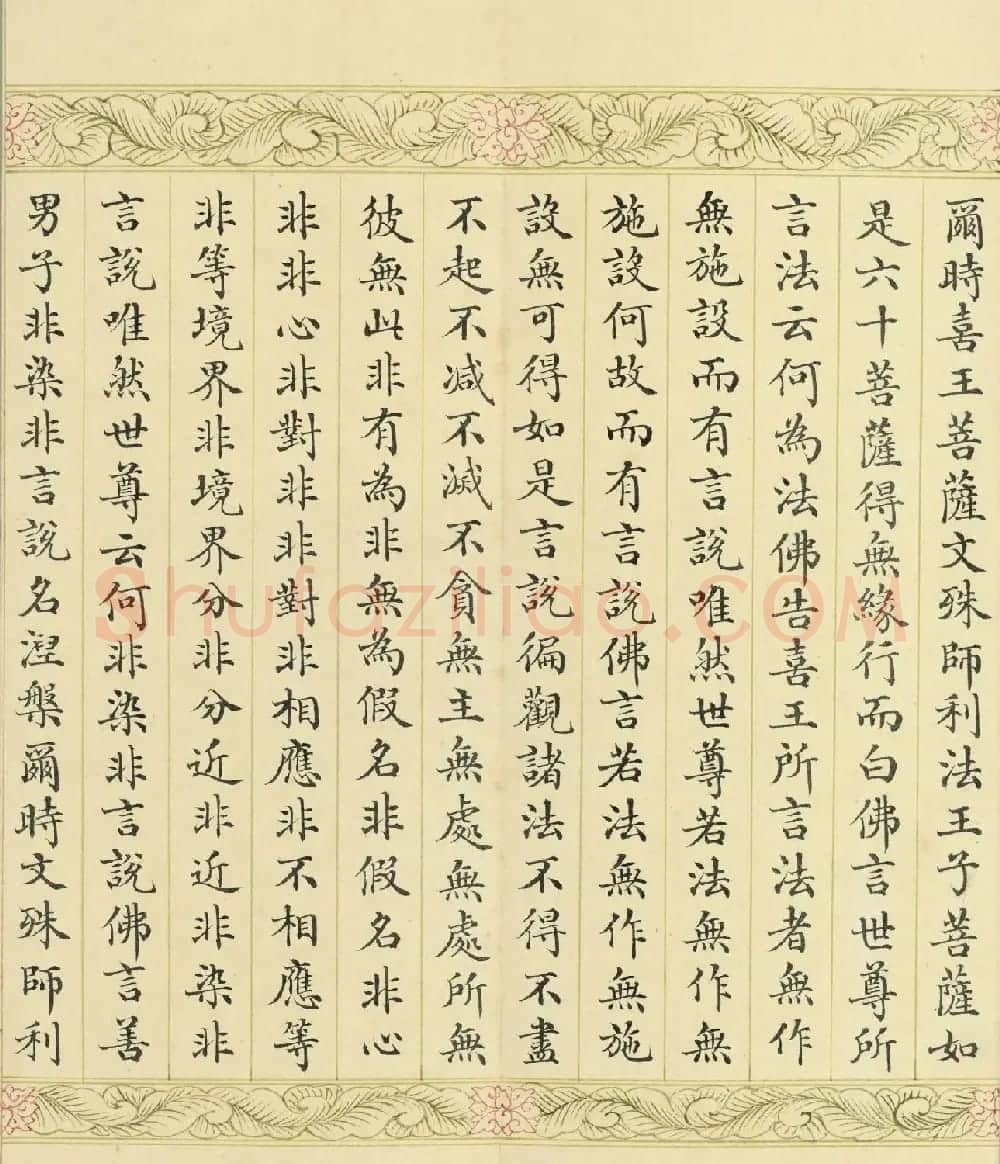 爾時喜王菩薩文殊師利法王子菩薩如
是六十菩薩得無緣行而白佛言世尊所
言法云何為法佛告喜王所言法者無作
無施設而有言說唯然世尊若法無作無
施設何故而有言說佛言若法無作無施
設無可得如是言說徧觀諸法不得不盡
不起不减不滅不貪無主無處無處所無
彼無此非有為非無為假名非假名非心
非非心非對非非對非相應非不相應等
非等境界非境界分非分近非近非染非
言說唯然世尊云何非染非言說佛言善
男子非染非言說名涅槃爾時文殊師利
Shufaziliao.COM